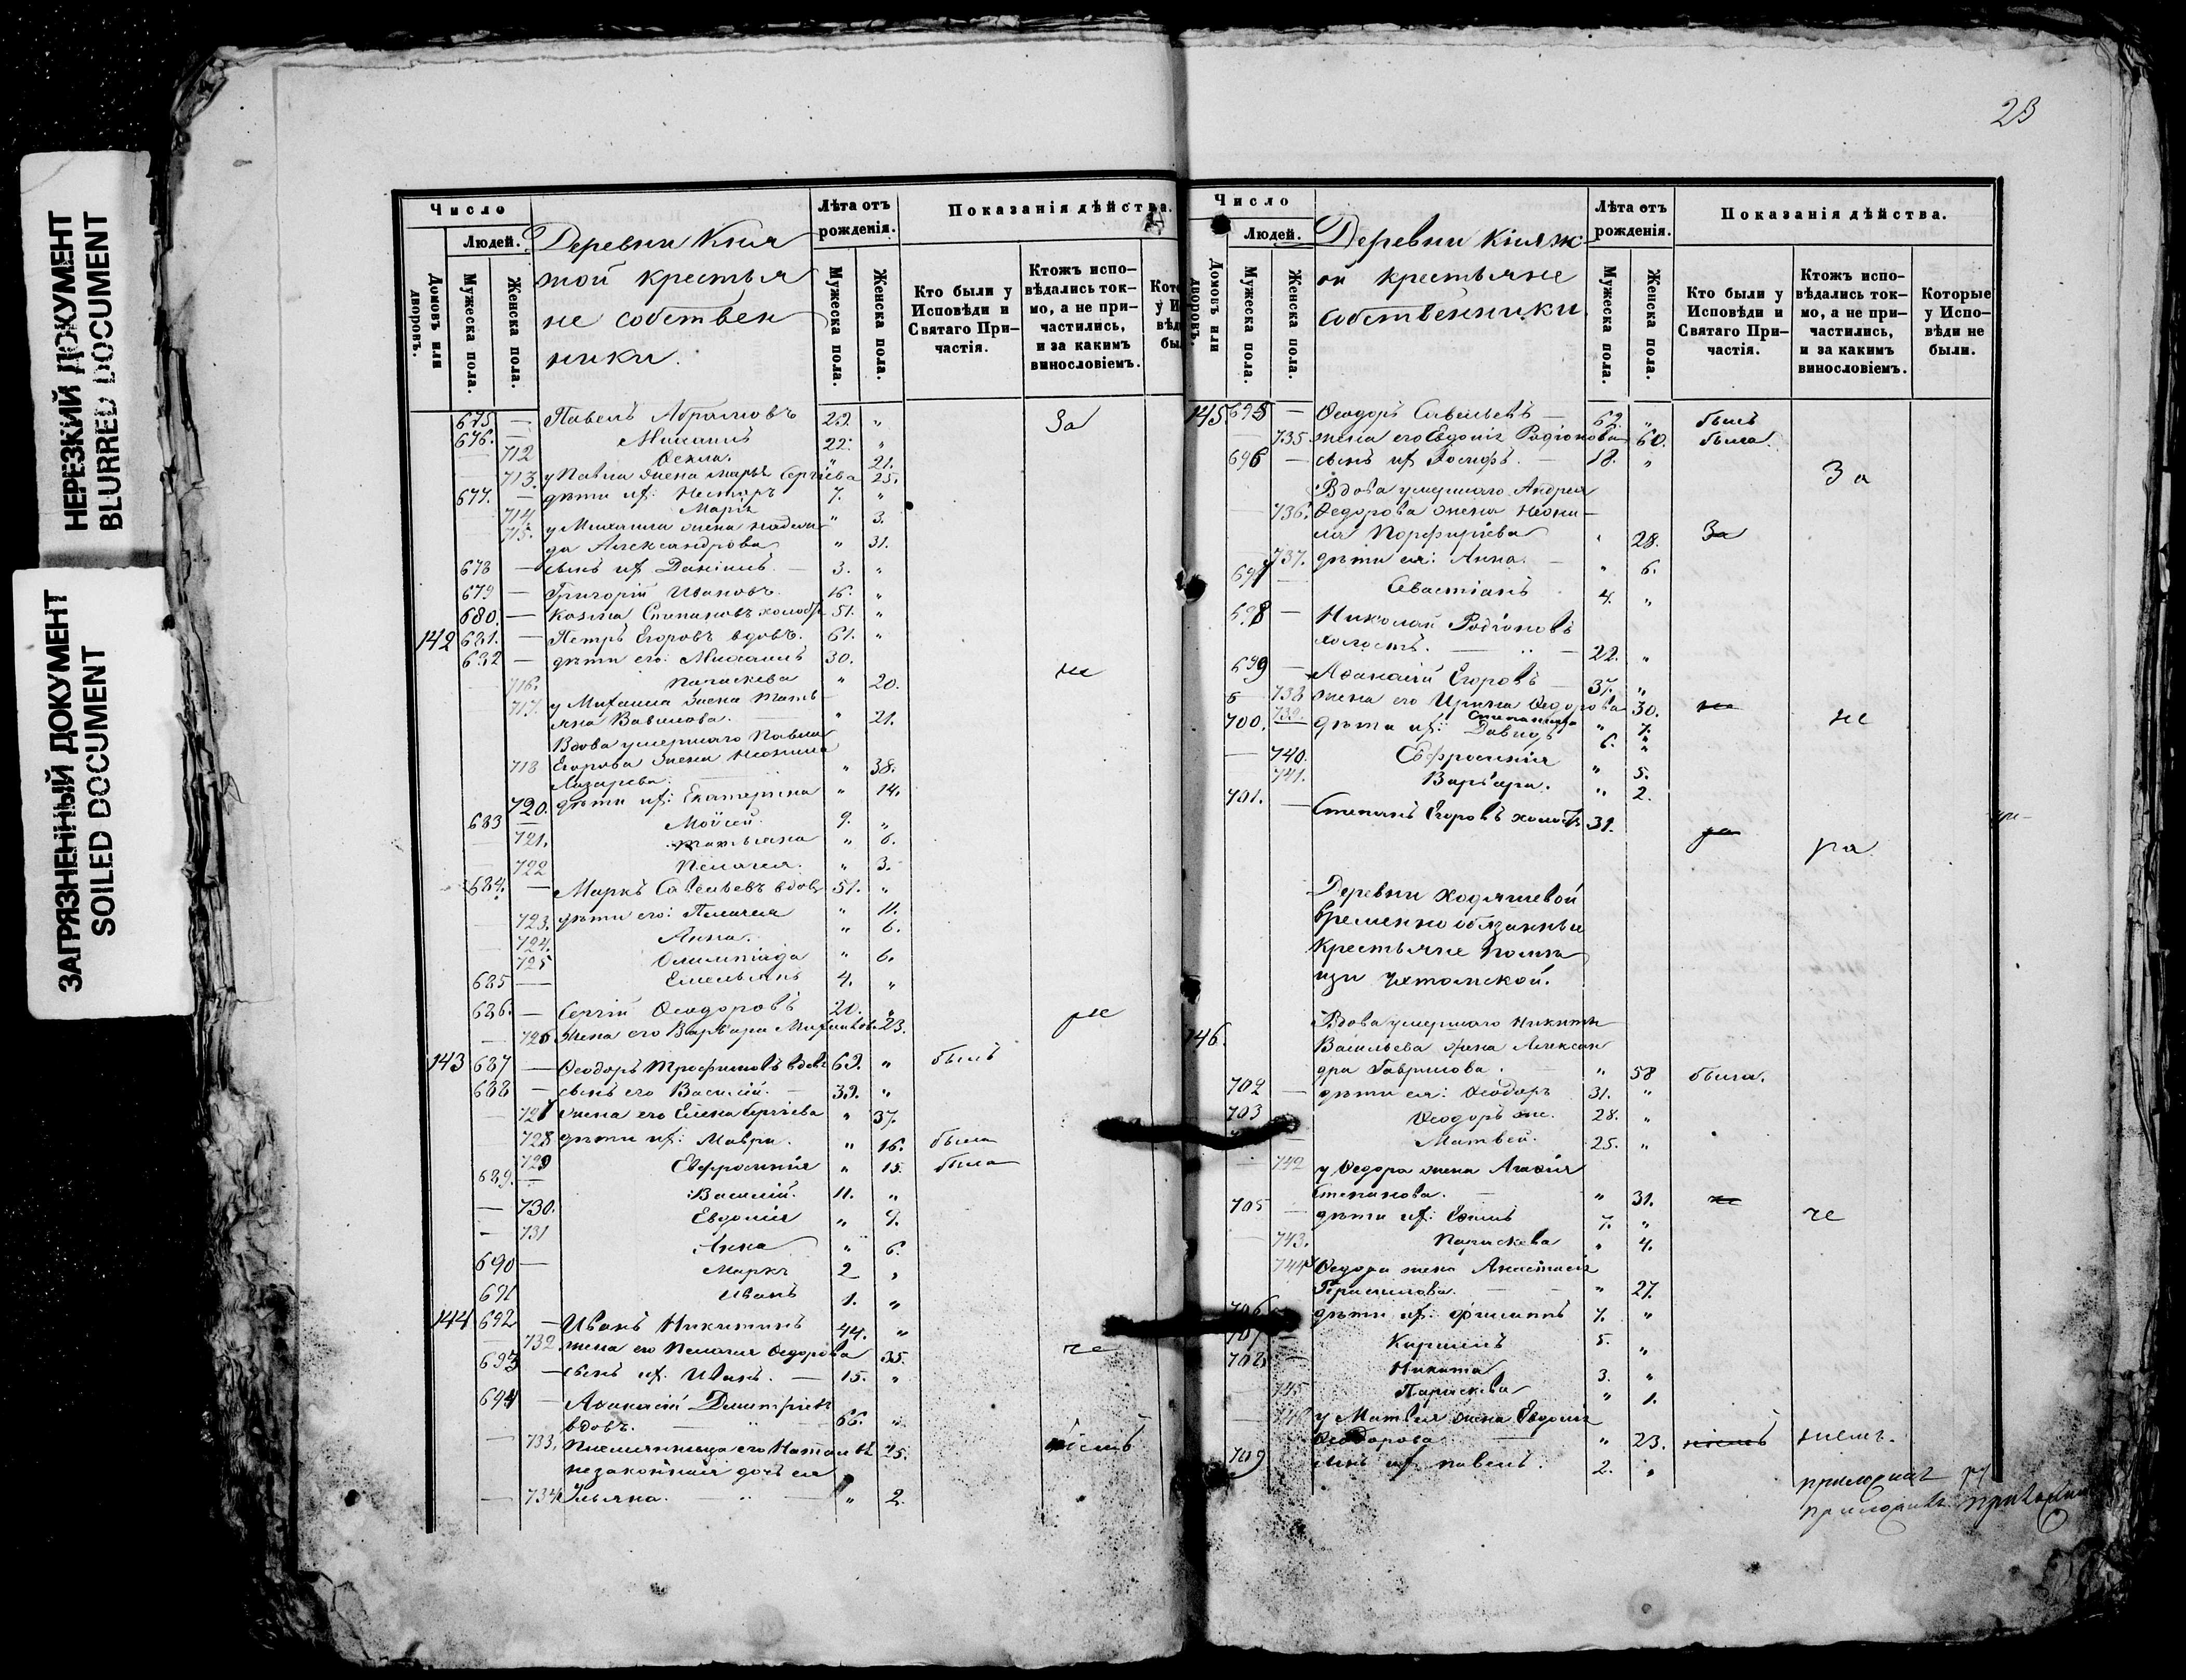 НЕРЕЗКИЙ ДОКУМЕНТ
BLURRED DOCUMENT
ЗАГРЯЗНЕННЫЙ ДОКУМЕНТ
SOILED DOCUMENT
Число
Людей.
Домовъ или дворовъ.
Мужеска пола.
Женска пола.
Деревни Кня
жой крестья
не собствен
ники.
Лѣта отъ рожденія.
Мужеска пола.
Женска пола.
Показанія дѣйства.
Кто были у Исповѣди и Святаго Причастія.
Ктожъ исповѣдались токмо, а не причастились, и за какимъ винословіемъ.
675 — Павелъ Абрамовъ 29. „ За
676. — Михаилъ 22. „
— 712 Ѳекла. „ 21.
— 713. у Павла жена Марья Сергіева 25.
677. — дѣти их: Несторъ 7. „
714. Марія „ 3.
715. у Михаила жена
да Александрова „ 31.
678 — сынъ их Даніилъ. — 3. „
679 — Григорій Ивановъ. 16. „
680. — Козма Степановъ холост 51. „
142 681. — Петръ Егоровъ вдовъ. 61. „
682 — дѣти его: Михаилъ 30. не
716. Параскева „ 20.
717. у Михаила жена Тать
яна Вавилова. „ 21.
Вдова умершаго Павла
718 Егорова жена Неонила
Лазарева. „ 38.
720. дѣти их: Екатерина „ 14.
683 — Моѵсей. 9. „
721. Татьяна „ 6.
722 Пелагея. „ 3.
684. — Маркъ Савельевъ вдовъ 51. „
723. дѣти его: Пелагея „ 11.
724. Анна. „ 6.
725 Олимпіада „ 6.
685 — Емельянъ 4. „
686. — Сергій Ѳеодоровъ 20. „
— 726 жена его Варвара 23.
143 687 — Ѳеодоръ Трофимовъ вдовъ 69. „ былъ
688 — сынъ его Василій. — 39. „
— 727 жена его Елена Сергіева „ 37.
— 728 дѣти их: Мавра. „ 16. была
729 Евфросинія „ 15. была
689. — Василій. 11. „
— 730. Евдокія „ 9.
- 731 Анна „ 6.
690 — Маркъ 2 „
691 Иванъ 1. „
144 692 — Иванъ Никитинъ 44. „
732 жена его Пелагея Ѳедорова 35. не
693 — сынъ их. Иванъ. — 15. „
694 — Аѳанасій Димитріевъ
вдовъ. 66. „
733. племянница его Наталія 25.
незаконная дочь ея
— 734 Ульяна. „ 2.
23
Число
Людей.
Домовъ или дворовъ.
Мужеска пола.
Женска пола.
Деревни Княж
ой крестьяне
собственники.
Лѣта отъ рожденія.
Мужеска пола.
Женска пола.
Показанія дѣйства.
Кто были у Исповѣди и Святаго Причастія.
Ктожъ исповѣдались токмо, а не причастились, и за какимъ винословіемъ.
Которые у Исповѣди не были.
145 695 — Ѳеодоръ Савельевъ — 62. „ былъ
735 жена его Евдокія Родіонова 60. была.
696 — сынъ их Іосифъ. — 18. „ За
Вдова умершаго Андрея
736. Ѳедорова жена Неони-
ла Порфиріева „ 28. За
737. дѣти ея: Анна. — „ 6.
697 — Севастіанъ 4. „
698 — Николай Родіоновъ
холостъ. 22. „
699 — Аѳанасій Егоровъ — 37. „
738 жена его Ирина Ѳедорова 30. не не
739. Степанида „ 7.
700. — дѣти их: Давидъ 6. „
740. Евфросинія „ 5.
741. Варвара. „ 2.
701. — Степанъ Егоровъ холостъ 31.
Деревни Ходяшевой
временно обязанныи
крестьяне помѣ
щи Ухтомской.
146. Вдова умершаго Никиты
Васильева жена Алексан
дра Гаврилова. „ 58 была.
702 — дѣти ея: Ѳеодоръ 31. „
703 Ѳеодоръ же. 28. „
Матвей. 25. „
742 у Ѳедора жена Агафія
Степанова. — „ 31. не не
705 — дѣти их: Ефимъ 7. „
743. Параскева „ 4.
744 Ѳедора жена Анастасія
Герасимова. „ 27.
706 дѣти их: Филиппъ 7. „
707 Кириллъ 5. „
708 — Никита 3. „
745 Параскева „ 1.
746 у Матвея жена Евдокія
Ѳеодорова „ 23.
709 сынъ их Павелъ. 2. „